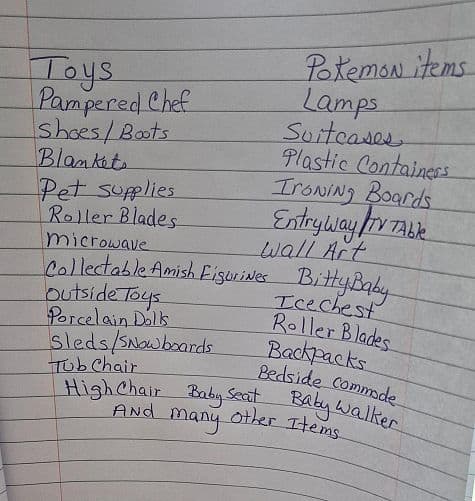 Toys Pokemon items
Pampered Chef Lamps
Shoes/Boots Suitcases
Blankets Plastic Containers
Pet supplies Ironing Boards
Roller Blades Entryway/TV Table
microwave Wall Art
Collectable Amish Figurines Bitty Baby
outside Toys Ice chest
Porcelain Dolls Roller Blades
Sleds/Snowboards Backpacks
Tub Chair Bedside Commode
High Chair Baby Seat Baby Walker
AND many other Items